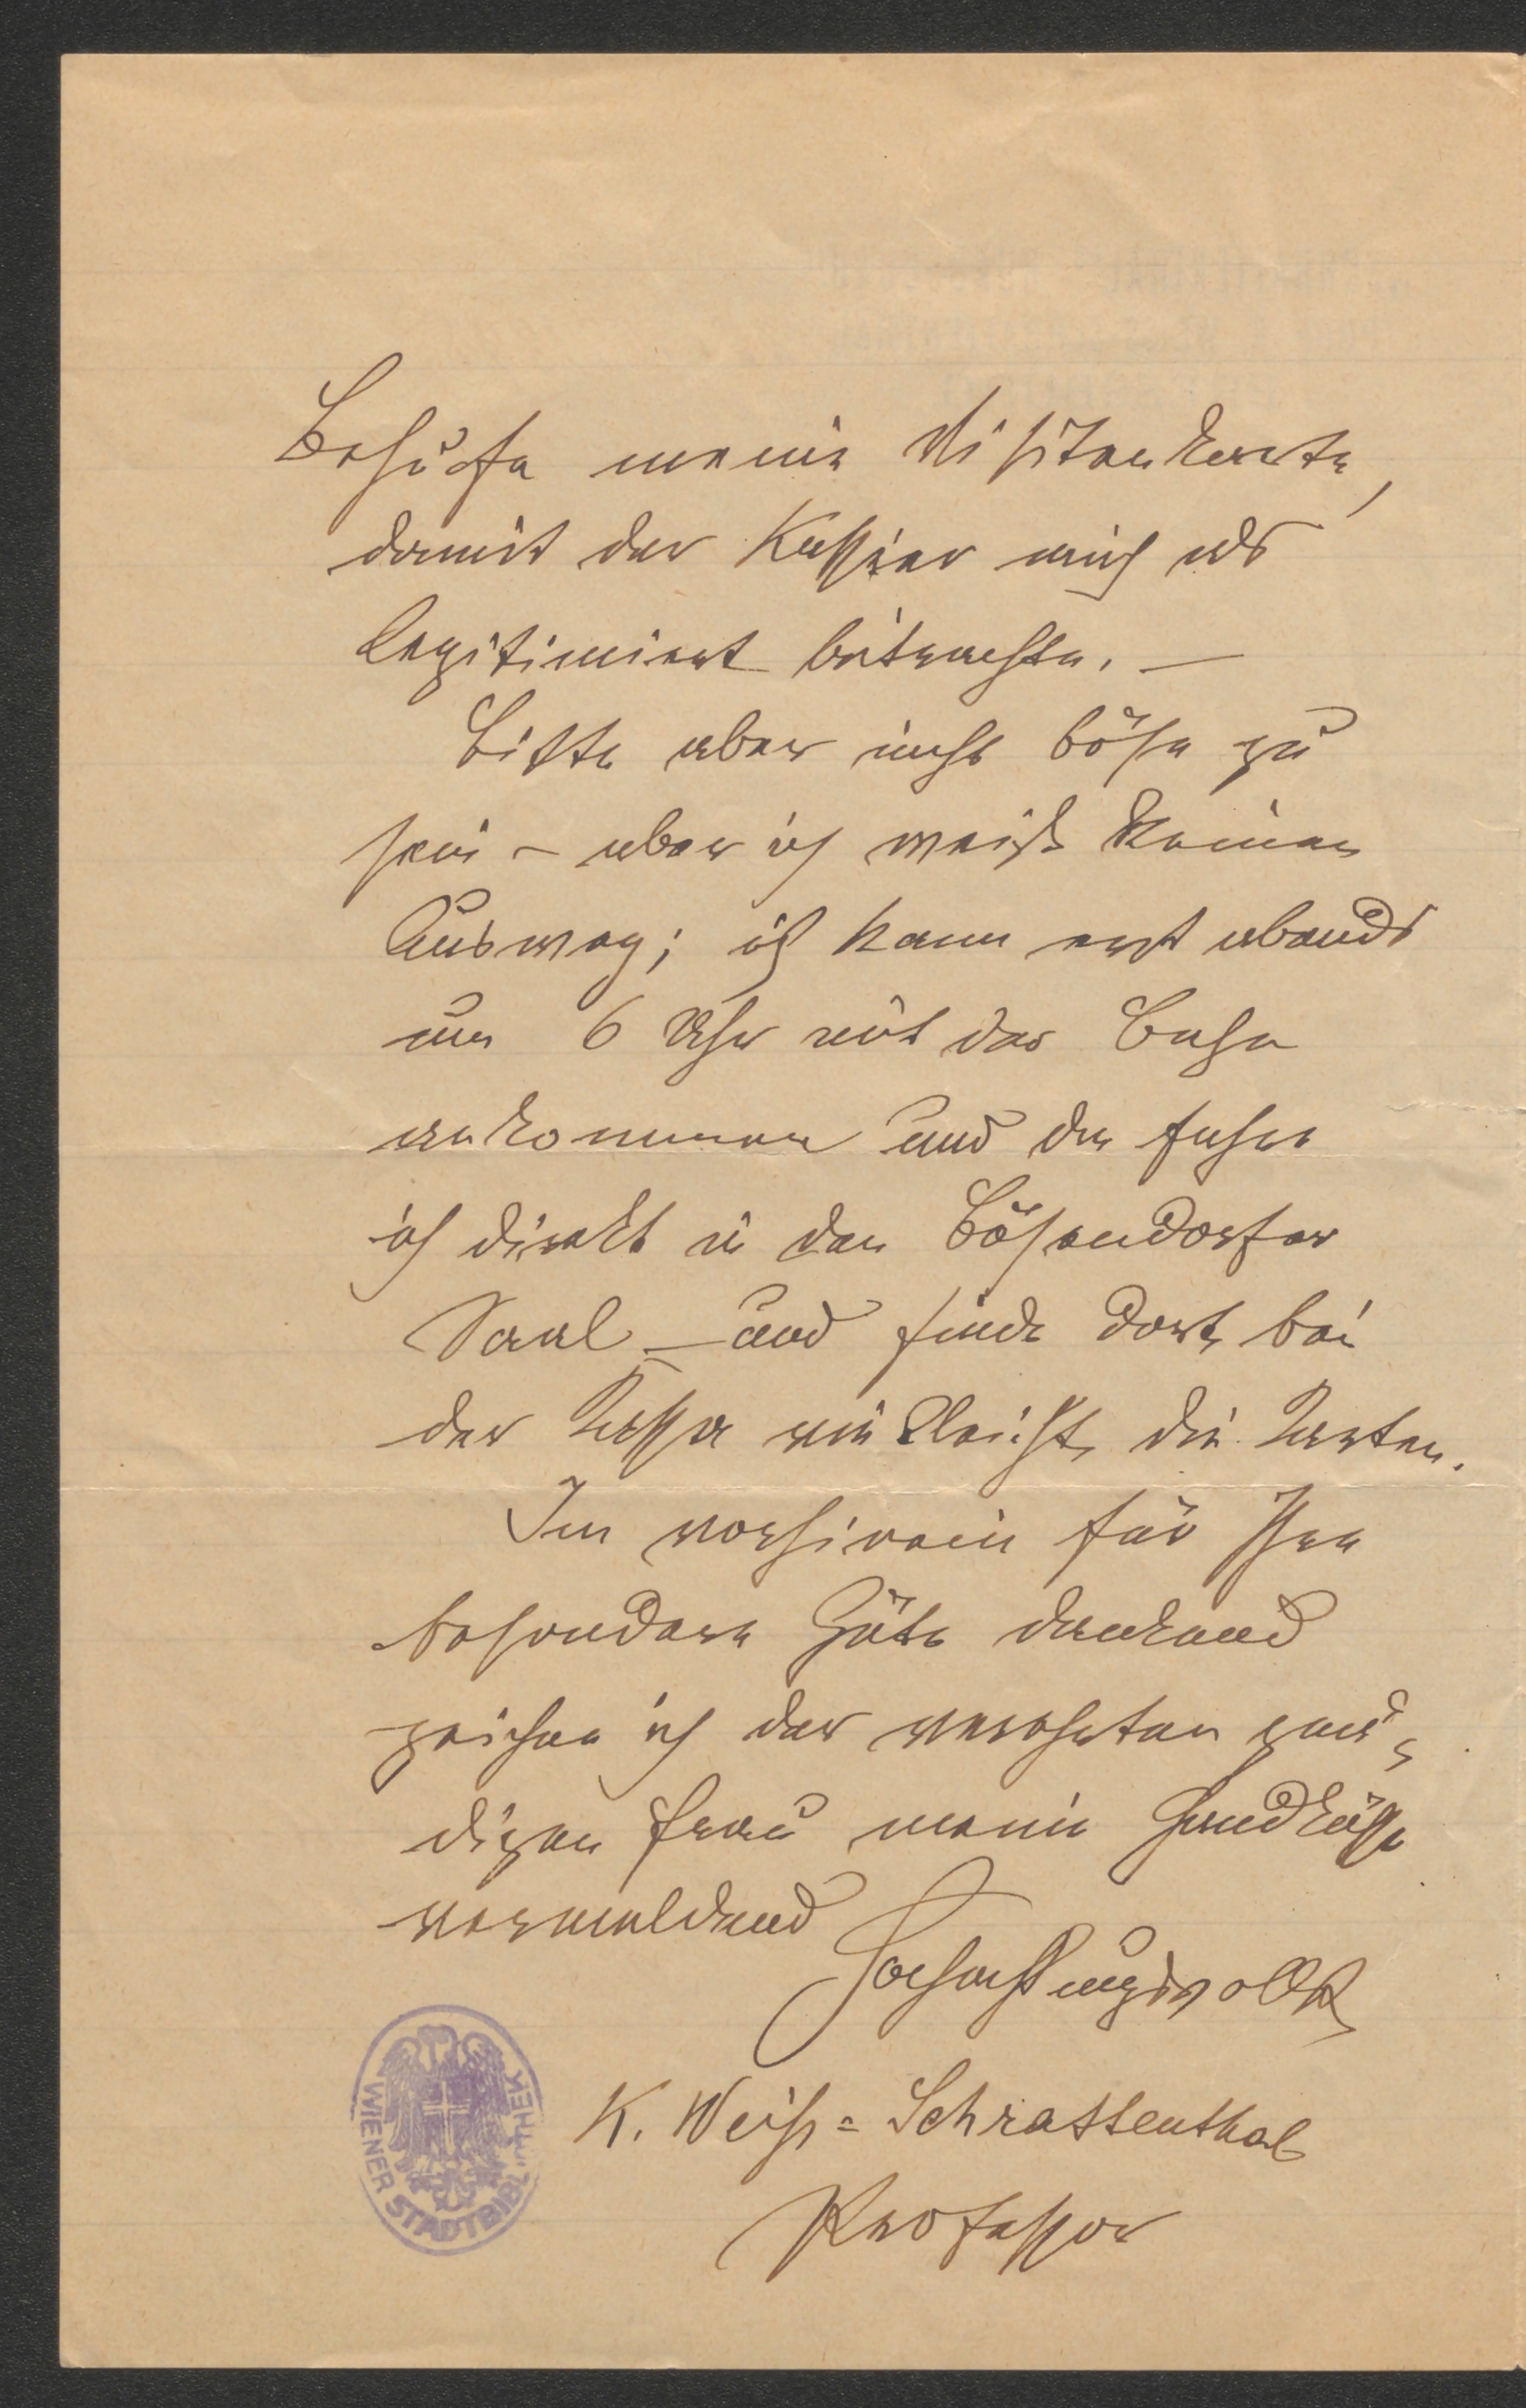 Behufe meine Visitenkarte,
damit der Kassier mich als
legitimiert betrachte. —
Bitte aber nicht böse zu
sein – aber ich weiß keinen
Ausweg; ich kann erst abends
um 6 Uhr mit der Bahn
ankommen und da fahre
ich direkt in den Bösendorfer
Saal – und finde dort bei
der Kassa vielleicht die Karten.
Im vorhinein für Ihre
besondere Güte dankend
zeichne ich der verehrten gnä-
digen Frau meine Handküsse
vermeldend
Hochachtungsvollst
K. Weiß=Schrattenthal
Professor
WIENER STADTBIBLIOTHEK